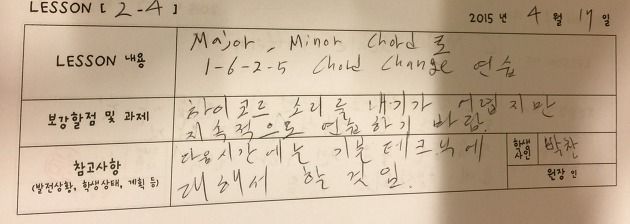 LESSON [ 2-4 ]
2015 년 4 월 17 일
LESSON 내용
Major, Minor Chord로
1-6-2-5 Chord Change 연습
보강할점 및 과제
하이코드 소리를 내기가 어렵지만
지속적으로 연습하기 바람.
참고사항
(발전상황, 학생상태, 계획 등)
다음시간에는 기본 테크닉에
대해서 할 것임.
학생
사인
박찬
원장 인